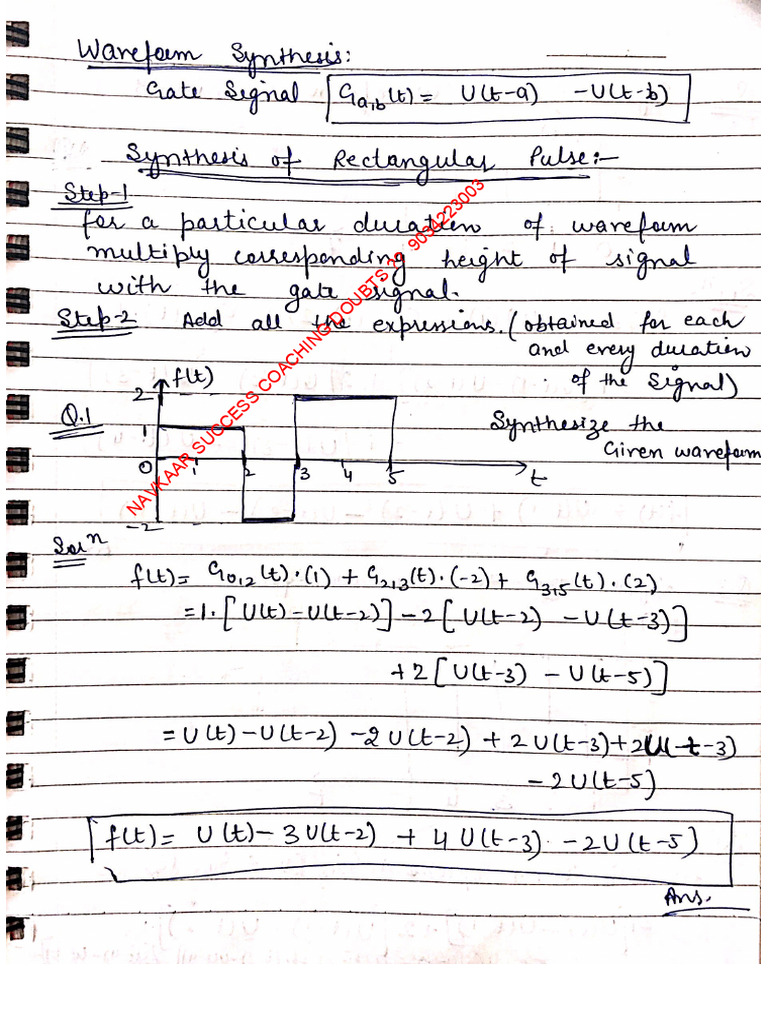 Waveform Synthesis:
Gate Signal G a,b (t) = U(t-a) - U(t-b)
Synthesis of Rectangular Pulse:-
Step-1
for a particular duration of waveform
multiply corresponding height of signal
with the gate signal.
Step-2 Add all the expressions. (obtained for each
and every duration
of the signal)
2 f(t)
Q.1 1 Synthesize the
Given waveform
0 1 2 3 4 5 t
-2
Solⁿ
f(t) = G0,2(t)·(1) + G2,3(t)·(-2) + G3,5(t)·(2)
= 1·[U(t) - U(t-2)] - 2[U(t-2) - U(t-3)]
+ 2[U(t-3) - U(t-5)]
= U(t) - U(t-2) - 2U(t-2) + 2U(t-3) + 2U(t-3)
- 2U(t-5)
f(t) = U(t) - 3U(t-2) + 4U(t-3) - 2U(t-5)
Ans.
NAVKAAR SUCCESS COACHING DOUBTS 9034223003